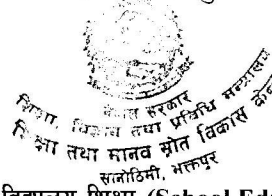 नेपाल सरकार
शिक्षा, विज्ञान तथा प्रविधि मन्त्रालय
शिक्षा तथा मानव स्रोत विकास केन्द्र
सानोठिमी, भक्तपुर
विद्यालय शिक्षा (School Ed